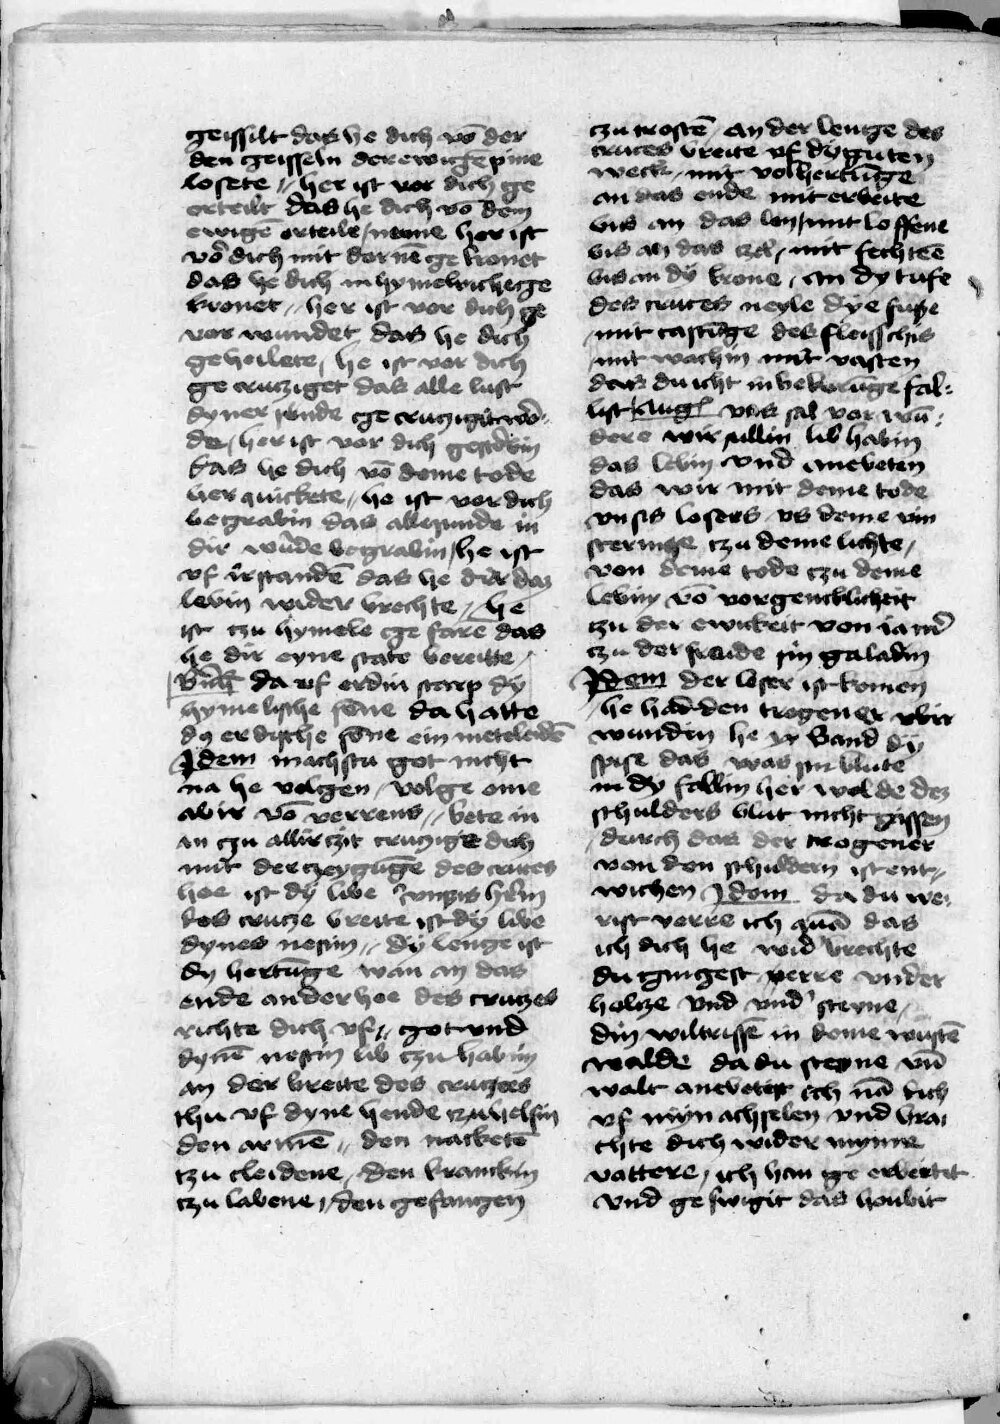 geissilt das he dich vō der
den geisseln der ewige pine
losete // her ist vor dich ge
orteilt das he dich vō dem
ewigē orteile / neme her ist
vor dich mit dornē ge kronet
das he dich in hymelriche ge
kronet // her ist vor dich ge
vor wundet das he dich
geheilete / he ist vor dich
ge crucziget das alle lust
dyner sunde ge cruczigit wor
de / her ist vor dich gestorbin
das he dich vō deme tode
her quickete // he ist vor dich
begrabin das alle sunde in
dir wurde begrabin / he ist
vf irstandē das he dir daz
lebin wider brechte // he
ist czu hymele ge farē das
he dir eyne state bereitte /
da vf erdin starp dy
hymelische sone da hatte
dy erdische sone ein meteleidē
Idem machstu got nicht
na he volgen / volge eme
abir vō verrens // bete in
an czu allir czit cruczige dich
mit der czeygūge des cruces
hoe ist dy libe vnsis hern
des crucze breite ist dy libe
dynes nestin // dy lenge ist
dy hertūge wan an das
ende an der hoe des cruczes
richte dich vf // got vnd
dynē nestin lib czu habin
an der breite des cruczes
thu vf dyne hende czu helfin
den armē // den nacketē
czu cleidene / den kranckin
czu labene / den gefangen
czu trostē / an der lenge des
cruces breite vf dy guten
werk / mit volhertūge
an das ende mit erbeite
bis an das lon / mit loffene
bis an das czel / mit fechtēe
bis an dy krone / an dy tufe
des cruces neyle dye fuse
mit castūge des fleisschis
mit wachin mit vasten
das du icht in bekorūge fal-
list Aug9 vns sal vor wū-
dere wir sullin lib habin
das lebin vnd anebeten
das wir mit deme tode
vnsis losers vs deme vin
sternisse czu deme lichte /
von deme tode czu deme
lebin vō vorgencklicheit
czu der ewickeit von iamer
czu der freude sin geladin
Idem der loser ist komen
he had den trogener vbir
wundin he vr band dy
spise das was sin blute
in dy fallin her wolde dez
schulders blut nicht gissen
durch das der trogener
von den schuldern ist ent-
wichen Idem da du we-
rist verre ich quā das
ich dich he wider brechte
du gingest verre vnder
holcze vnd vnd steyne /
din wiltrissē in deme wustē
walde da du steyne vn̄
walt anebetest ich nā dich
vf myn achselen vnd bra-
chte dich wider mynne
vattere / ich han ge erbeitet
vnd ge swigit das houbit